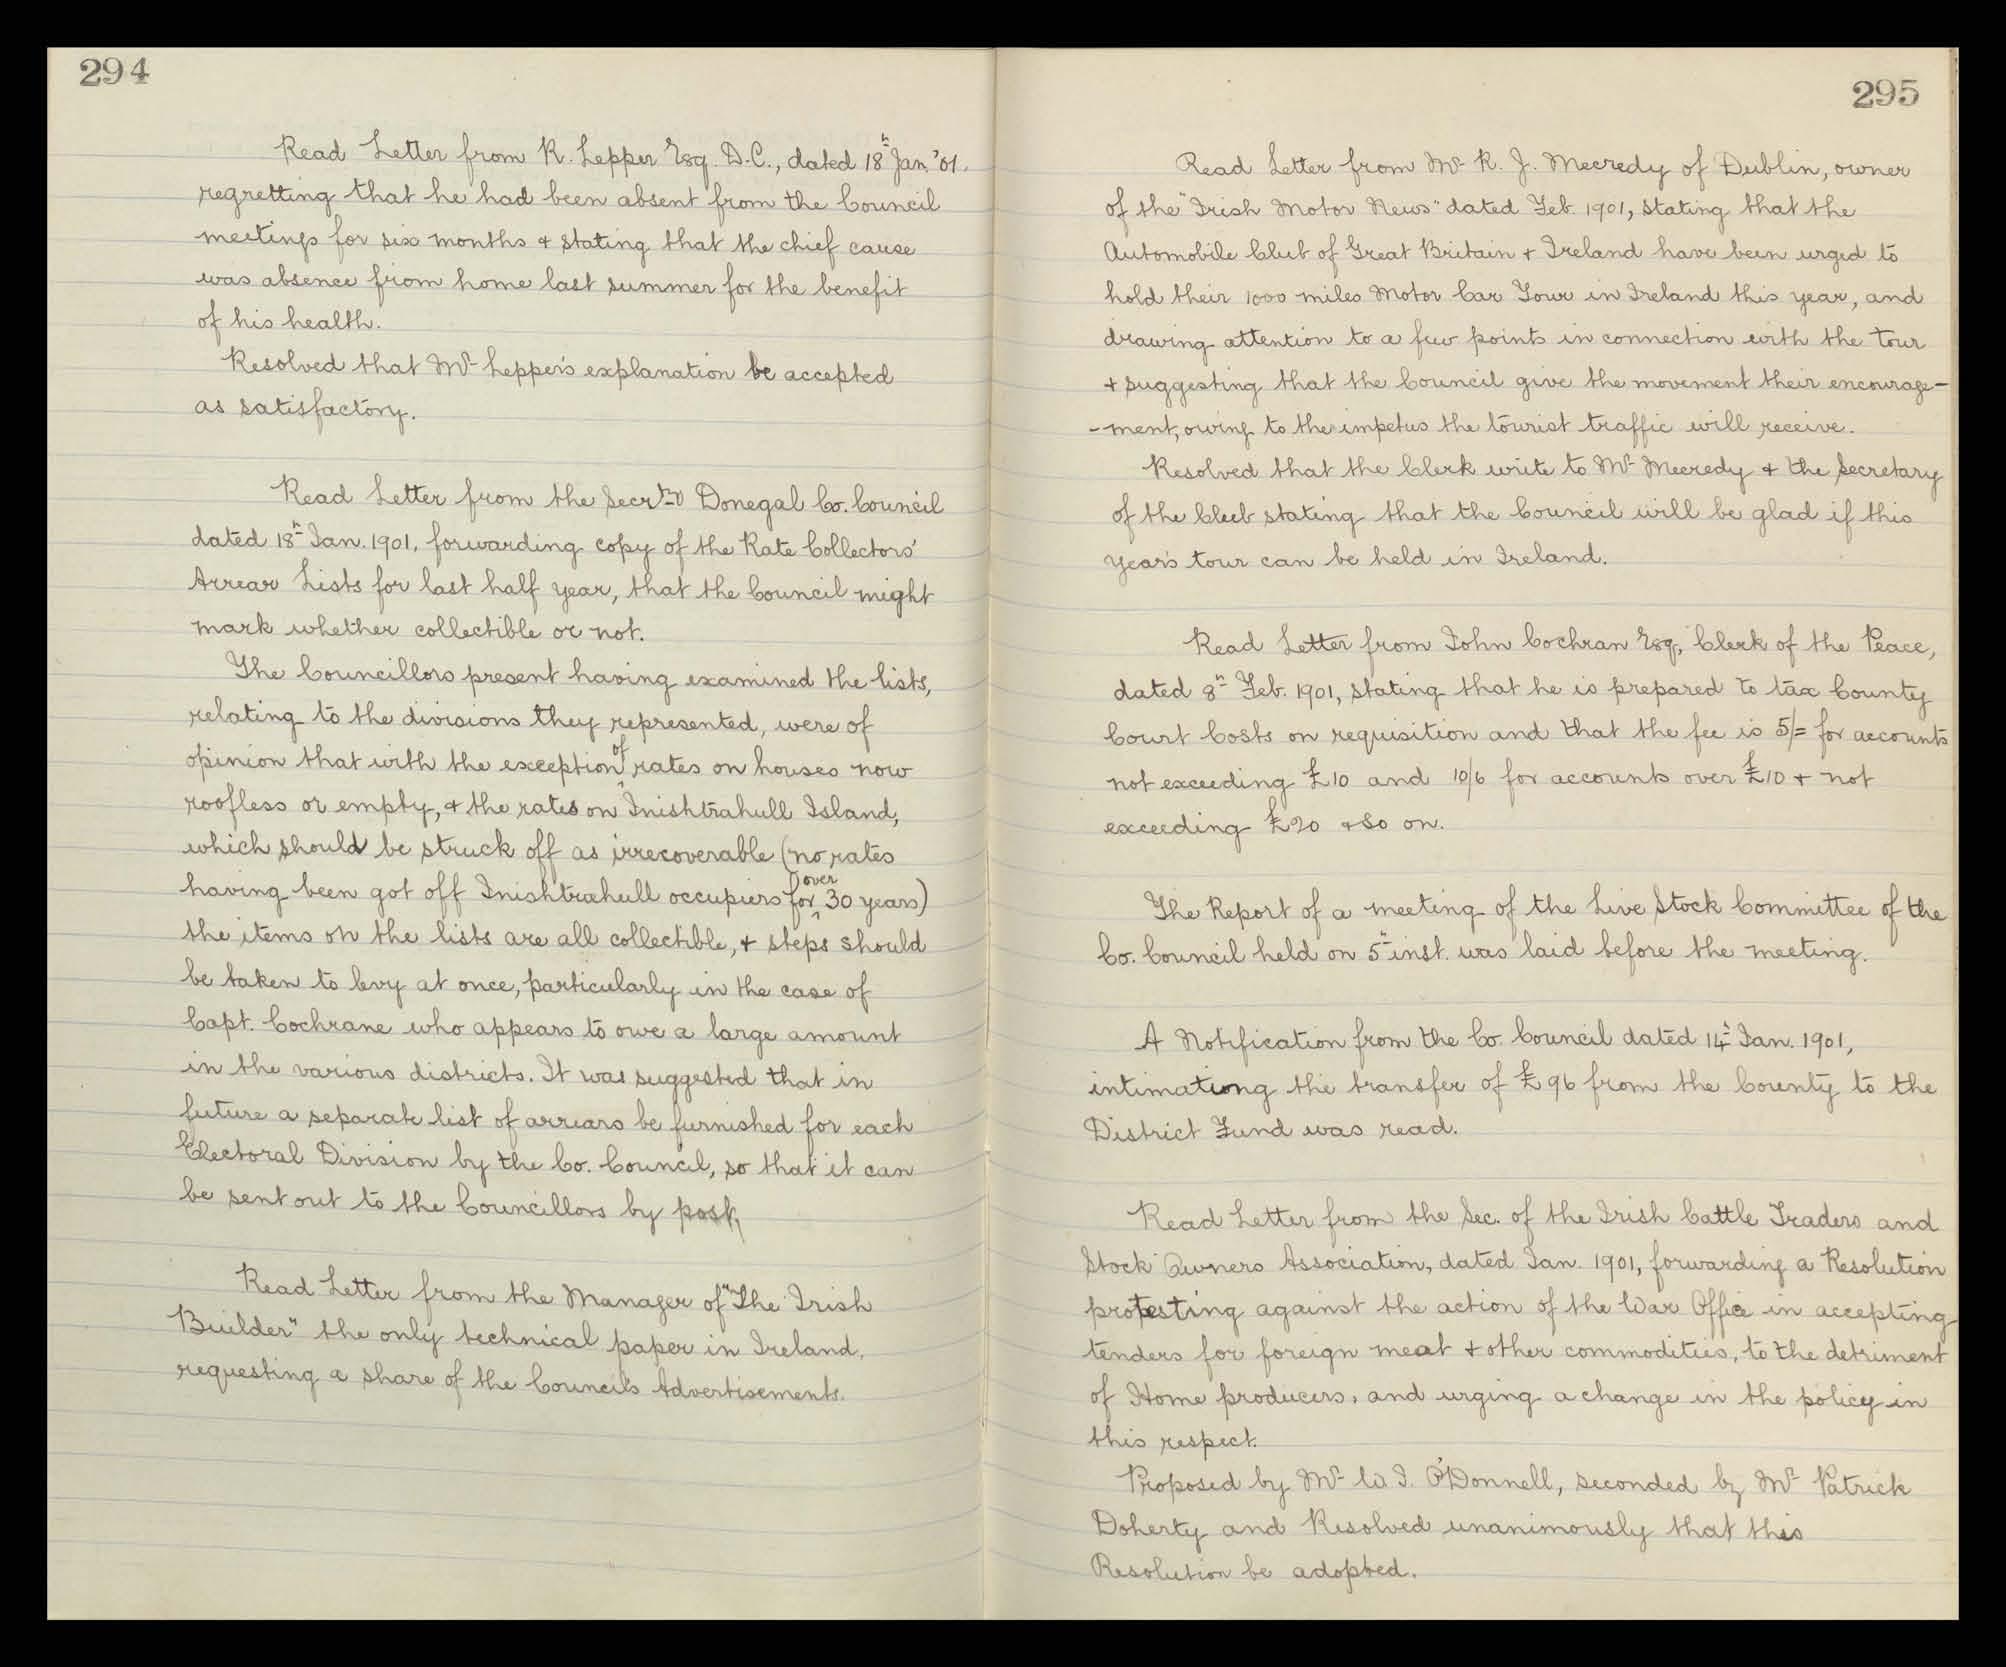 294
Read Letter from R. Lepper Esq. D.C., dated 18th Jan. '01.
regretting that he had been absent from the Council
meetings for six months & stating that the chief cause
was absence from home last summer for the benefit
of his health.
Resolved that Mr Lepper's explanation be accepted
as satisfactory.
Read Letter from the Secrty Donegal Co. Council
dated 18th Jan. 1901, forwarding copy of the Rate Collectors'
Arrear Lists for last half year, that the Council might
mark whether collectible or not.
The Councillors present having examined the lists,
relating to the divisions they represented, were of
opinion that with the exception of rates on houses now
roofless or empty, & the rates on Inishtrahull Island,
which should be struck off as irrecoverable (no rates
having been got off Inishtrahull occupiers for over 30 years)
the items on the lists are all collectible, & steps should
be taken to levy at once, particularly in the case of
Capt. Cochrane who appears to owe a large amount
in the various districts. It was suggested that in
future a separate list of arrears be furnished for each
Electoral Division by the Co. Council, so that it can
be sent out to the Councillors by post.
Read Letter from the Manager of "The Irish
Builder" the only technical paper in Ireland,
requesting a share of the Council's Advertisements.
295
Read Letter from Mr R. J. Mecredy of Dublin, owner
of the "Irish Motor News" dated Feb. 1901, stating that the
Automobile Club of Great Britain & Ireland have been urged to
hold their 1000 miles Motor Car Tour in Ireland this year, and
drawing attention to a few points in connection with the tour
& suggesting that the Council give the movement their encourage-
-ment, owing to the impetus the tourist traffic will receive.
Resolved that the Clerk write to Mr Mecredy & the Secretary
of the Club stating that the Council will be glad if this
year's tour can be held in Ireland.
Read Letter from John Cochran Esq, Clerk of the Peace,
dated 8th Feb. 1901, stating that he is prepared to tax County
Court Costs on requisition and that the fee is 5/= for accounts
not exceeding £10 and 10/6 for accounts over £10 & not
exceeding £20 & so on.
The Report of a meeting of the Live Stock Committee of the
Co. Council held on 5th inst. was laid before the meeting.
A Notification from the Co. Council dated 14th Jan. 1901,
intimationg the transfer of £96 from the County to the
District Fund was read.
Read Letter from the Sec. of the Irish Cattle Traders and
Stock Owners Association, dated Jan. 1901, forwarding a Resolution
protesting against the action of the War Office in accepting
tenders for foreign meat & other commodities, to the detriment
of Home producers, and urging a change in the policy in
this respect.
Proposed by Mr W. J. O'Donnell, seconded by Mr Patrick
Doherty and Resolved unanimously that this
Resolution be adopted.